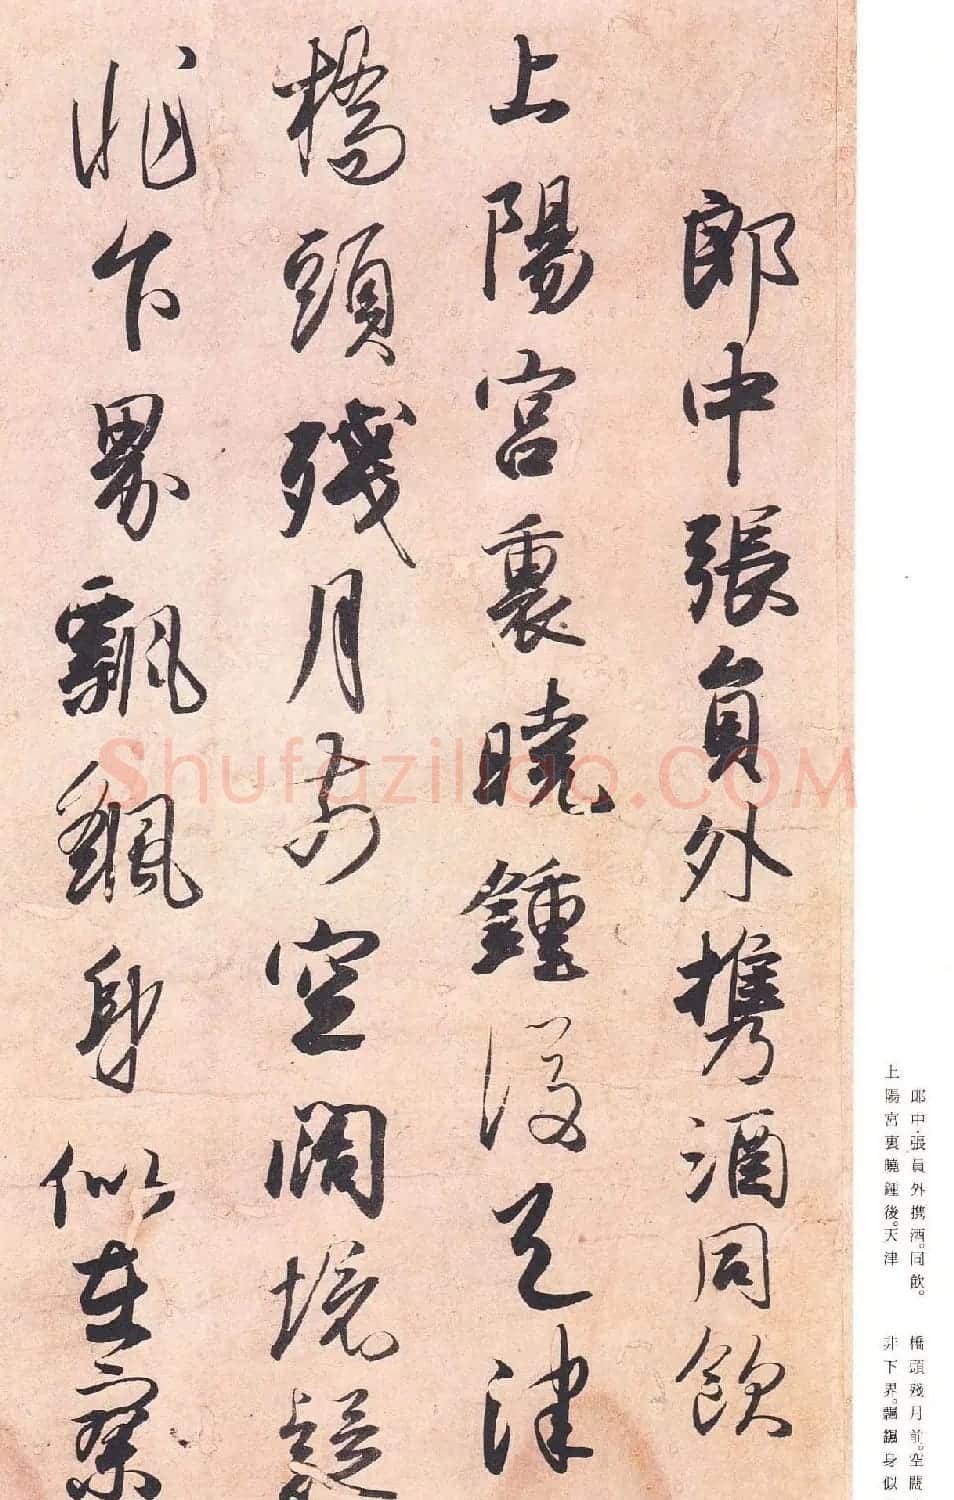 郎中張員外携酒同飲
上陽宮裏曉鍾後天津
橋頭殘月前空闊境疑
非下界飄飄身似在寥
Shufaziliao.COM
郎中張員外携酒。同飲。
上陽宮裏曉鍾後。天津
橋頭殘月前。空闊
非下界。飄飄身似